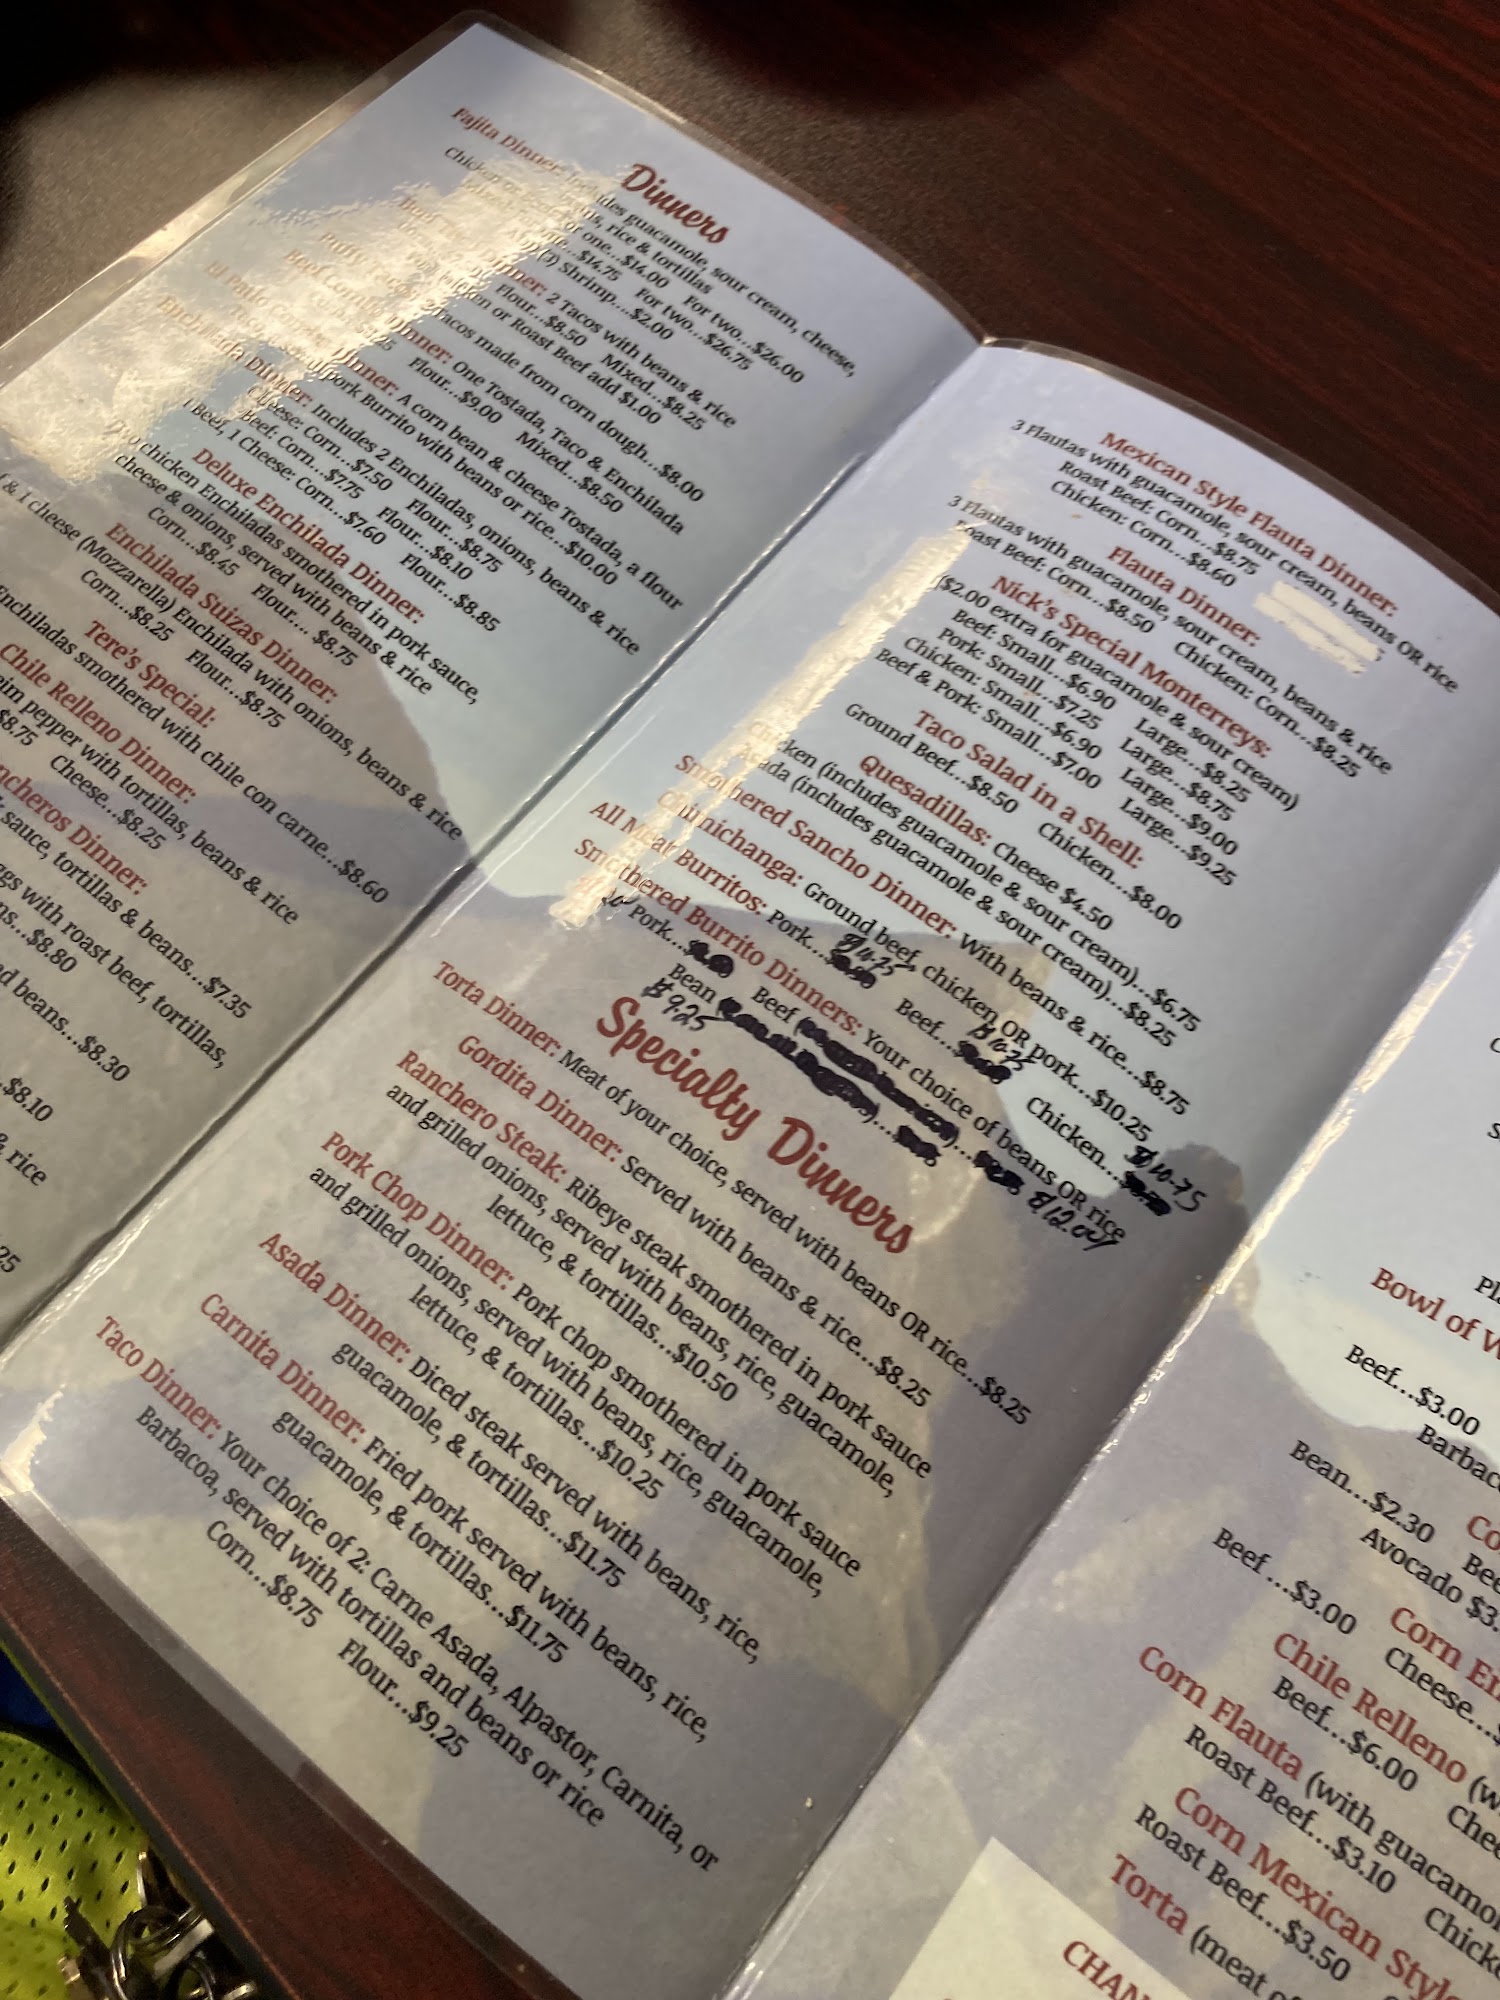 Dinners
Fajita Dinner: Includes guacamole, sour cream, cheese,
beans, rice & tortillas
Chicken or for one...$14.00 For two...$26.00
$14.75 For two...$26.75
Shrimp....$2.00
Dinner: 2 Tacos with beans & rice
Flour...$8.50 Mixed...$8.25
with Chicken or Roast Beef add $1.00
Puffy Taco Dinner: 2 Tacos made from corn dough...$8.00
Beef Combo Dinner: One Tostada, Taco & Enchilada
Flour...$9.00 Mixed...$8.50
El Patio Dinner: A corn bean & cheese Tostada, a flour
pork Burrito with beans or rice...$10.00
Enchilada Dinner: Includes 2 Enchiladas, onions, beans & rice
Cheese: Corn...$7.50 Flour...$8.75
Beef: Corn...$7.75 Flour...$8.10
1 Beef, 1 Cheese: Corn...$7.60 Flour...$8.85
Deluxe Enchilada Dinner:
Two chicken Enchiladas smothered in pork sauce,
cheese & onions, served with beans & rice
Corn...$8.45 Flour.... $8.75
Enchilada Suizas Dinner:
& 1 cheese (Mozzarella) Enchilada with onions, beans & rice
Corn...$8.25 Flour...$8.75
Tere's Special:
Enchiladas smothered with chile con carne...$8.60
Chile Relleno Dinner:
pepper with tortillas, beans & rice
$8.75 Cheese...$8.25
Dinner:
sauce, tortillas & beans...$7.35
with roast beef, tortillas,
$8.80
beans...$8.30
...$8.10
& rice
Mexican Style Flauta Dinner:
3 Flautas with guacamole, sour cream, beans OR rice
Roast Beef: Corn...$8.75
Chicken: Corn...$8.60
Flauta Dinner:
3 Flautas with guacamole, sour cream, beans & rice
Roast Beef: Corn...$8.50 Chicken: Corn...$8.25
Nick's Special Monterreys:
($2.00 extra for guacamole & sour cream)
Beef: Small...$6.90 Large...$8.25
Pork: Small...$7.25 Large...$8.75
Chicken: Small...$6.90 Large...$9.00
Beef & Pork: Small...$7.00 Large...$9.25
Taco Salad in a Shell:
Ground Beef...$8.50 Chicken...$8.00
Quesadillas: Cheese $4.50
Chicken (includes guacamole & sour cream)...$6.75
Asada (includes guacamole & sour cream)...$8.25
Smothered Sancho Dinner: With beans & rice...$8.75
Chimichanga: Ground beef, chicken OR pork...$10.25
All Meat Burritos: Pork... $10.25 Beef... $10.75 Chicken... $10.75
Smothered Burrito Dinners: Your choice of beans OR rice
Pork... Beef ( )... $12.00
Bean ( )...
$9.25
Specialty Dinners
Torta Dinner: Meat of your choice, served with beans OR rice...$8.25
Gordita Dinner: Served with beans & rice...$8.25
Ranchero Steak: Ribeye steak smothered in pork sauce
and grilled onions, served with beans, rice, guacamole,
lettuce, & tortillas...$10.50
Pork Chop Dinner: Pork chop smothered in pork sauce
and grilled onions, served with beans, rice, guacamole,
lettuce, & tortillas...$10.25
Asada Dinner: Diced steak served with beans, rice,
guacamole, & tortillas...$11.75
Carnita Dinner: Fried pork served with beans, rice,
guacamole, & tortillas...$11.75
Taco Dinner: Your choice of 2: Carne Asada, Alpastor, Carnita, or
Barbacoa, served with tortillas and beans or rice
Corn...$8.75 Flour...$9.25
Bowl of
Beef...$3.00
Bean...$2.30
Avocado $3.
Beef ...$3.00 Cheese...
Chile Relleno
Beef...$6.00
Corn Flauta (with
Roast Beef...$3.10
Corn Mexican Style
Roast Beef...$3.50
Torta (meat